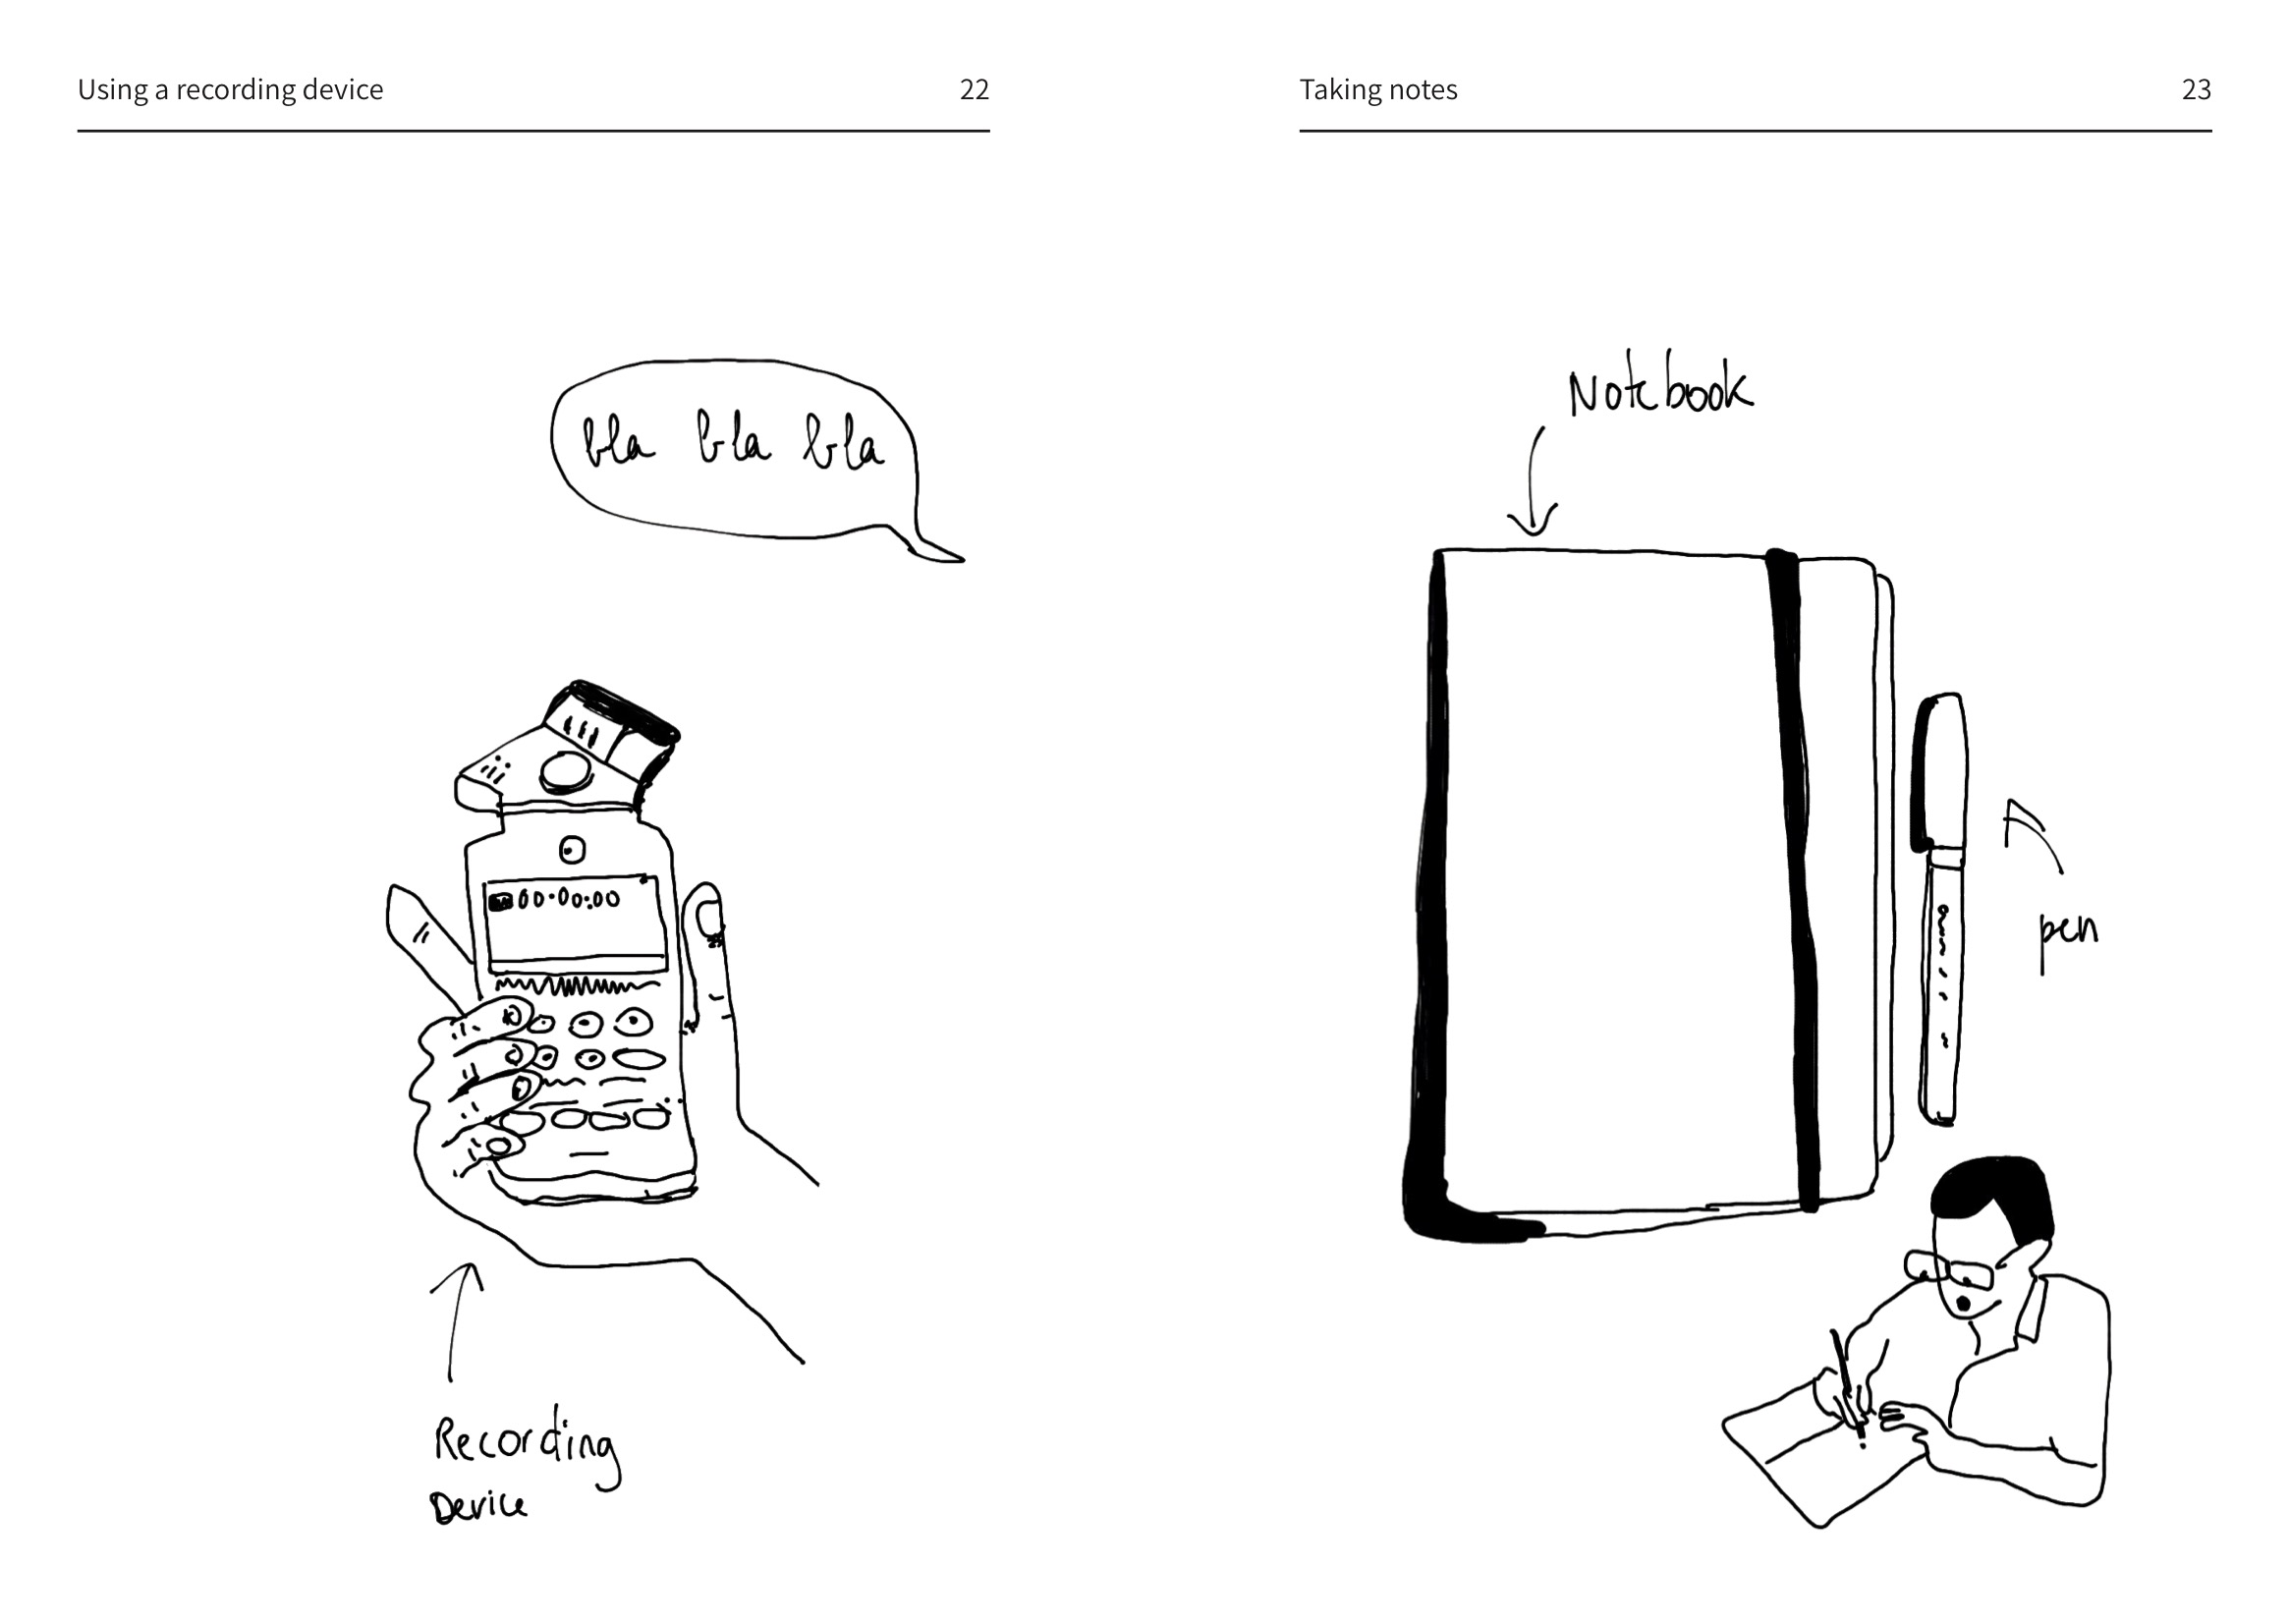 Using a recording device 22
bla bla bla
00:00:00
Recording
Device
Taking notes 23
Notebook
pen